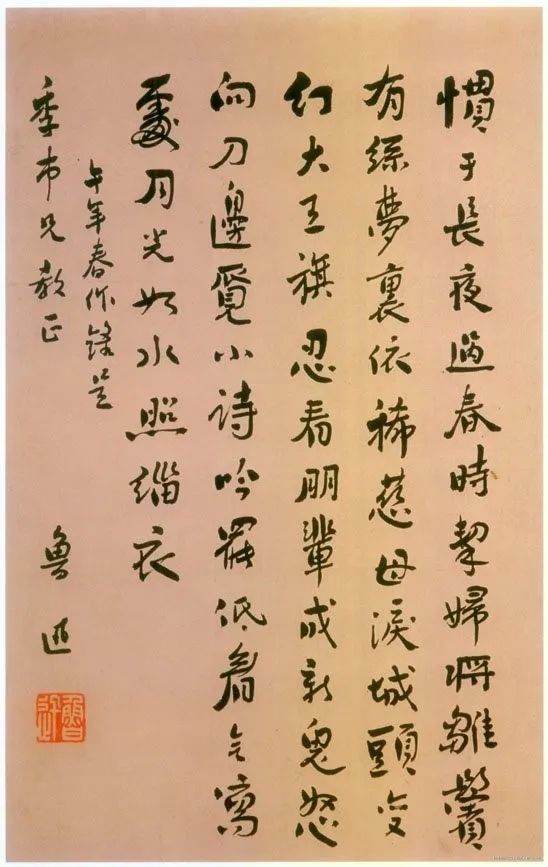 慣于長夜過春時挈婦將雛鬢
有絲夢裏依稀慈母淚城頭變
幻大王旗忍看朋輩成新鬼怒
向刀邊覓小詩吟罷低眉無寫
處月光如水照緇衣
午年春作錄呈
季巿兄教正
魯迅
魯迅